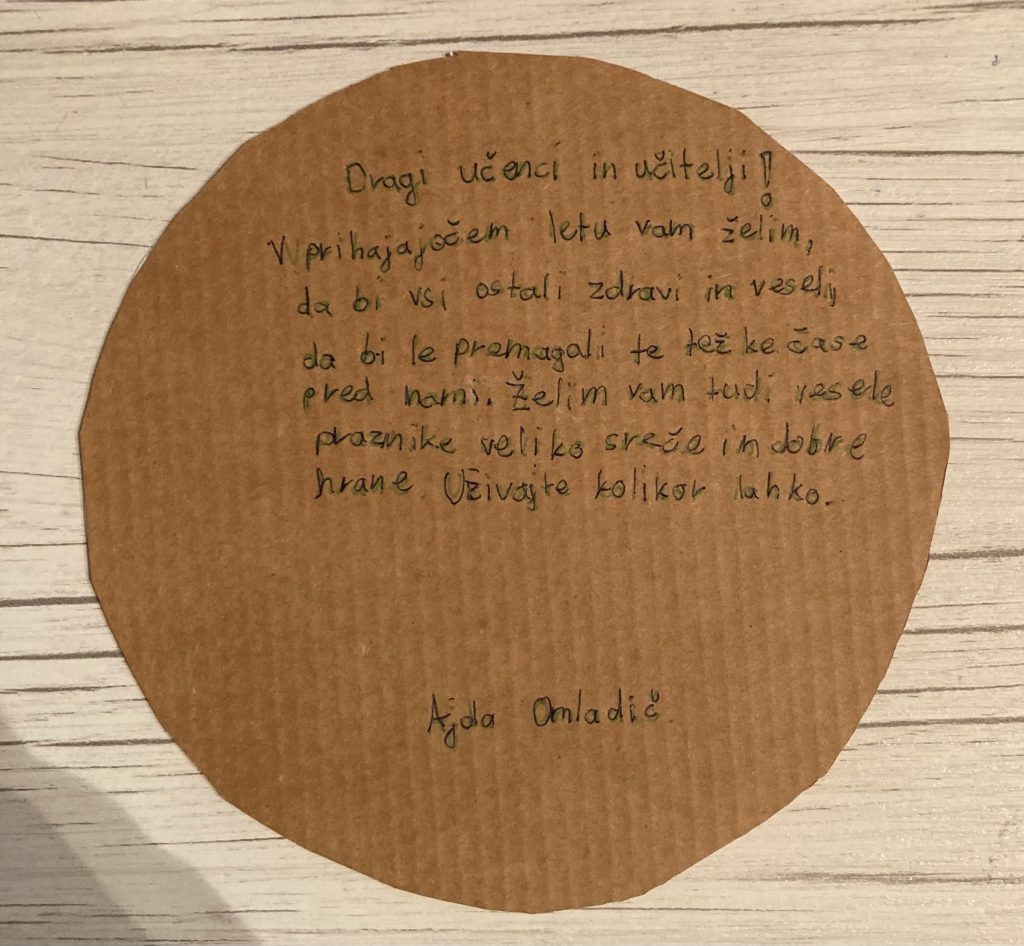 Dragi učenci in učitelji!
V prihajajočem letu vam želim,
da bi vsi ostali zdravi in veseli,
da bi le premagali te težke čase
pred nami. Želim vam tudi vesele
praznike veliko sreče in dobre
hrane. Uživajte kolikor lahko.
Ajda Omladič